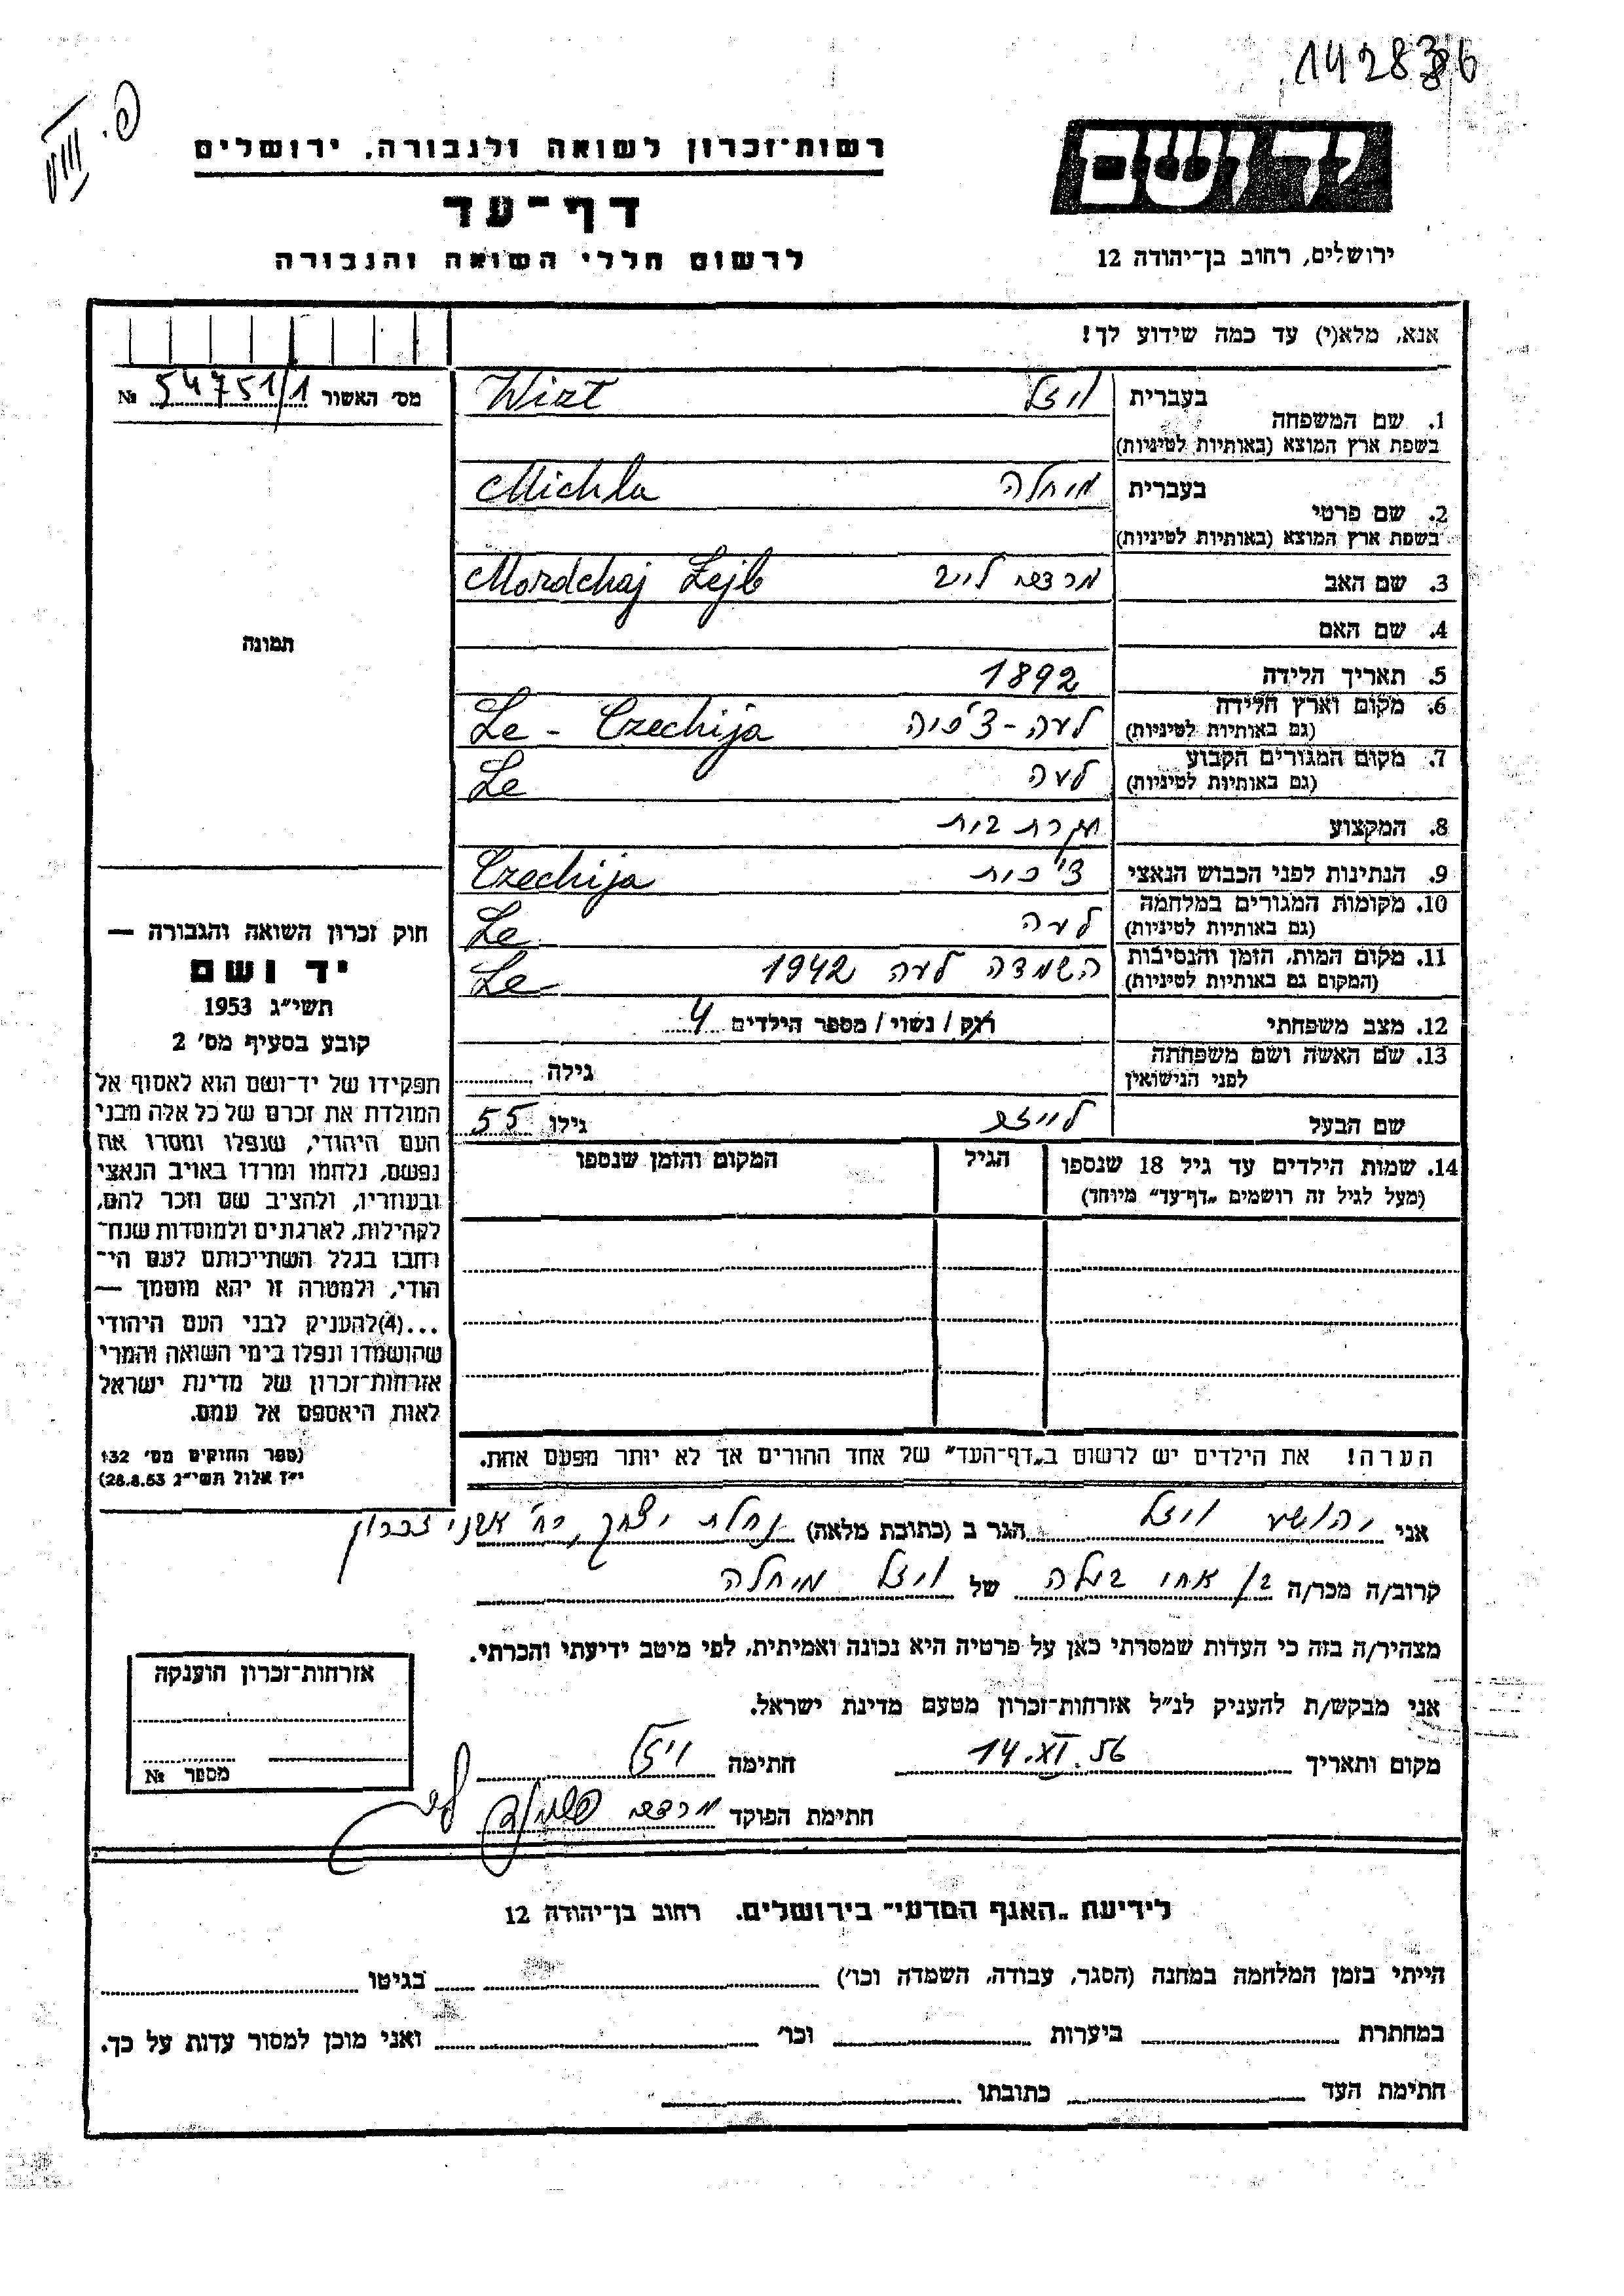 142836
פ. VIII
יד ושם
רשות־זכרון לשואה ולגבורה, ירושלים
דף־עד
לרשום חללי השואה והגבורה
ירושלים, רחוב בן־יהודה 12
אנא, מלא(י) עד כמה שידוע לך!
מס׳ האשור 54751/1 №
תמונה
1. שם המשפחה בעברית
בשפת ארץ המוצא (באותיות לטיניות)
2. שם פרטי בעברית מיחלה Michla
בשפת ארץ המוצא (באותיות לטיניות)
3. שם האב מרדכי לייב Mordchaj Lejb
4. שם האם
5. תאריך הלידה 1892
6. מקום וארץ הלידה Le - Czechija
(גם באותיות לטיניות)
7. מקום המגורים הקבוע Le
(גם באותיות לטיניות)
8. המקצוע עקרת בית
9. הנתינות לפני הכבוש הנאצי צ'כית Czechija
10. מקומות המגורים במלחמה Le
(גם באותיות לטיניות)
11. מקום המות, הזמן והנסיבות השמדה 1942 Le
(המקום גם באותיות לטיניות)
12. מצב משפחתי רוק / נשוי / מספר הילדים 4
13. שם האשה ושם משפחתה
לפני הנישואין גילה
שם הבעל גילו 55
14. שמות הילדים עד גיל 18 שנספו הגיל המקום והזמן שנספו
(מעל לגיל זה רושמים „דף־עד” מיוחד)
הערה! את הילדים יש לרשום ב„דף־העד” של אחד ההורים אך לא יותר מפעם אחת.
חוק זכרון השואה והגבורה —
יד ושם
תשי״ג 1953
קובע בסעיף מס׳ 2
תפקידו של יד־ושם הוא לאסוף אל
המולדת את זכרם של כל אלה מבני
העם היהודי, שנפלו ומסרו את
נפשם, נלחמו ומרדו באויב הנאצי
ובעוזריו, ולהציב שם וזכר להם,
לקהילות, לארגונים ולמוסדות שנח־
רבו בגלל השתייכותם לעם הי־
הודי, ולמטרה זו יהא מוסמך —
...(4)להעניק לבני העם היהודי
שהושמדו ונפלו בימי השואה והמרי
אזרחות־זכרון של מדינת ישראל
לאות היאספם אל עמם.
(ספר החוקים מס׳ 132
י״ז אלול תשי״ג 28.8.53)
אני יהושע הגר ב (כתובת מלאה) נחלת יצחק, רח׳
קרוב/ה מכר/ה בן אחי בעלה של מיחלה
מצהיר/ה בזה כי העדות שמסרתי כאן על פרטיה היא נכונה ואמיתית, לפי מיטב ידיעתי והכרתי.
אני מבקש/ת להעניק לנ״ל אזרחות־זכרון מטעם מדינת ישראל.
מקום ותאריך 14.XI.56 חתימה
חתימת הפוקד מרדכי
אזרחות־זכרון הוענקה
מספר №
לידיעת „האגף המדעי” בירושלים. רחוב בן־יהודה 12
הייתי בזמן המלחמה במחנה (הסגר, עבודה, השמדה וכו׳) בגיטו
במחתרת ביערות וכו׳ ואני מוכן למסור עדות על כך.
חתימת העד כתובתו